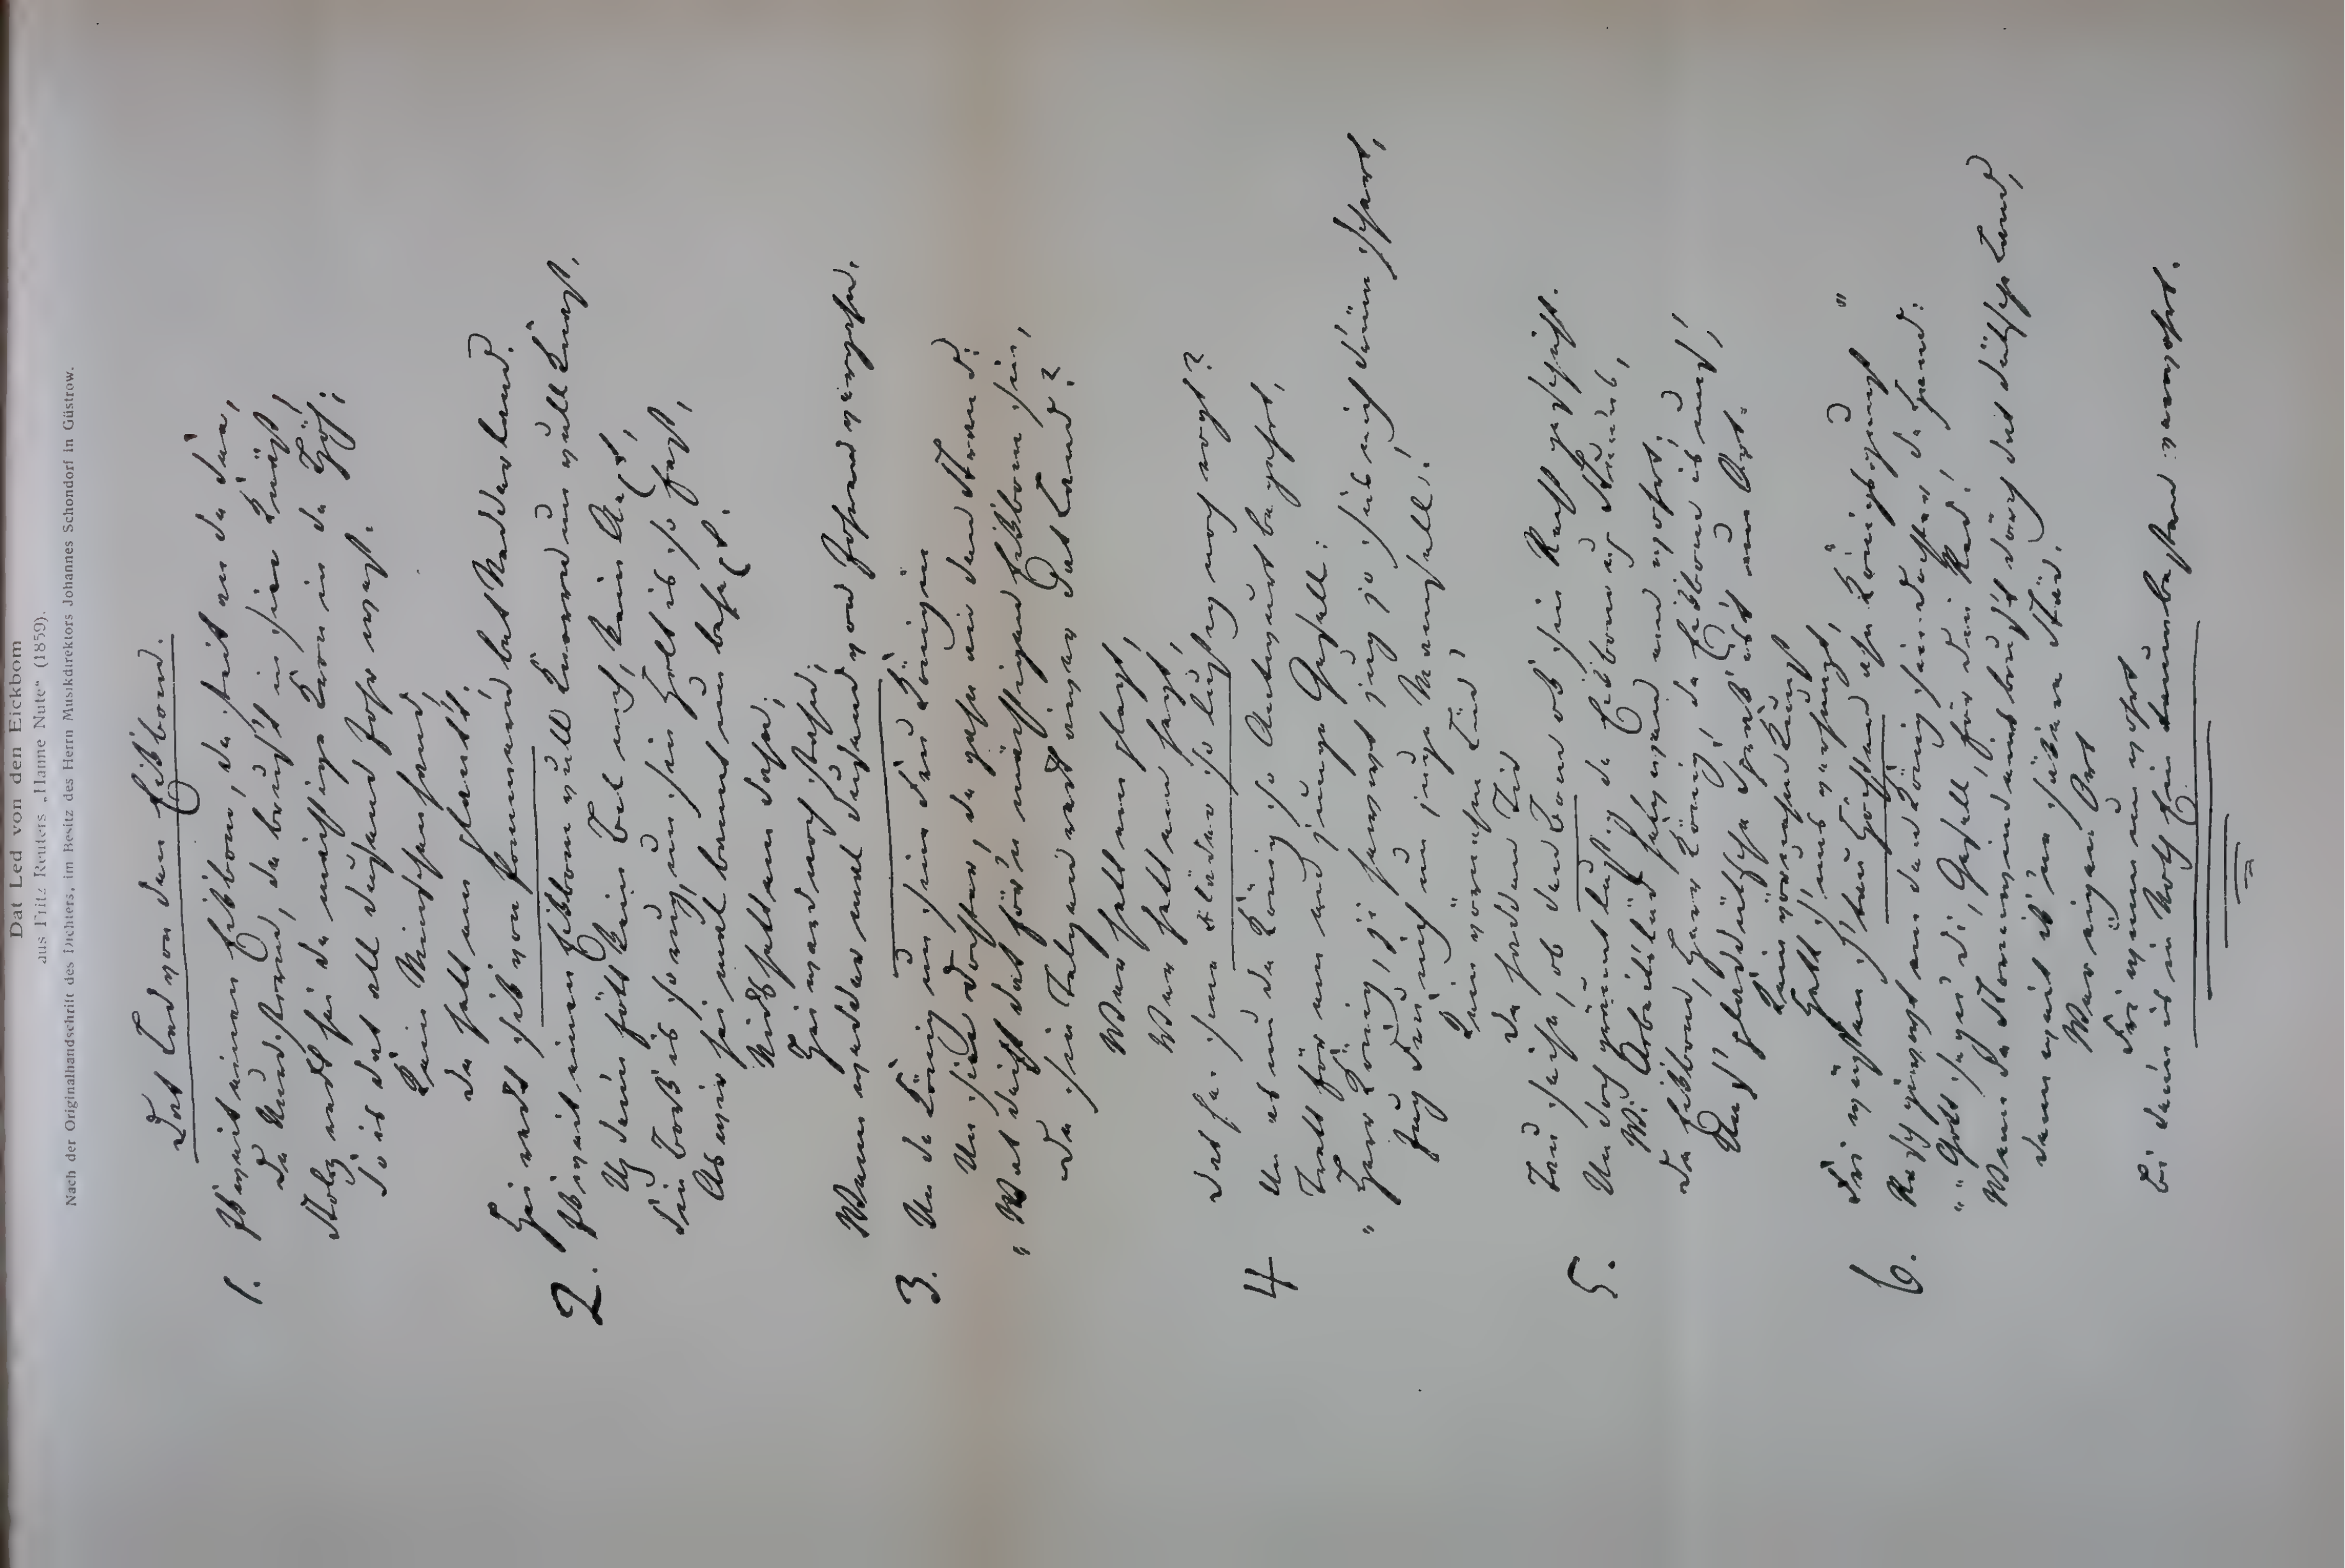 Dat Led von den Eickbom
aus Fritz Reuters „Hanne Nute“ (1859).
Nach der Originalhandschrift des Dichters, im Besitz des Herrn Musikdirektors Johannes Schondorf in Güstrow.
Dat Led von den Eikbom.
1. Ik weit einen Eikbom, de steit an de See,
De Nurdstorm, de brus't in sine Knäst,
Stolz reckt hei de mächtige Kron in de Höh;
So is dat all dusend Johr west.
Kein Minschenhand,
De hett em plant't;
Hei reckt sik von Pommern bet Nedderland.
2. Ik weit einen Eikbom vull Knorrn un vull Knast,
Up denn fött kein Bil nich, kein Äxt,
Sin Bork is so rug un sin Holt is so fast,
As wir hei mal bannt un behext.
Nicks hett em dahn;
Hei ward noch stahn,
Wenn wedder mal dusend von Johren vergahn.
3. Un de König un sine Fru Königin
Un sine Dochter, de gahn an den Strand:
„Wat deiht dat för'n mächtigen Eikbom sin,
De sin Telgen reckt äwer dat Land?
Wer hett em plegt,
Wer hett em hegt,
Dat he sine Bläder so lustig noch rögt?
4 Un as nu de König so Antwurt begehrt,
Trett för em en junge Gesell:
„Herr König, ji hewwt jug jo süs nich drüm schert,
Jug Fru nich un juge Mamsell!
Kein vörnehm Lüd,
De hadden Tid
Tau seihn, ob den Bom ok sin Recht geschüht.
5. Un doch gräunt lustig de Eikbom up Stuns,
Wi Arbeitslüd hewwen em wohrt;
De Eikbom, Herr König, de Eikbom is uns',
Uns' plattdütsche Sprak is't un Ort.
Kein vörnehm Kunst
Hett s' uns verhunzt,
Fri wüssen s' tau Höchten ahn Königsgunst“
6. Rasch giwwt em den König sin Dochter de Hand:
„Gott seg'n di, Gesell, för din Red!
Wenn de Stormwind eins brus't dörch dat dütsche Land,
Denn weit ik 'ne säkere Städ:
Wer eigen Ort
Fri wünn un wohrt
Bi denn is in Noth Ein taum besten verwohrt.